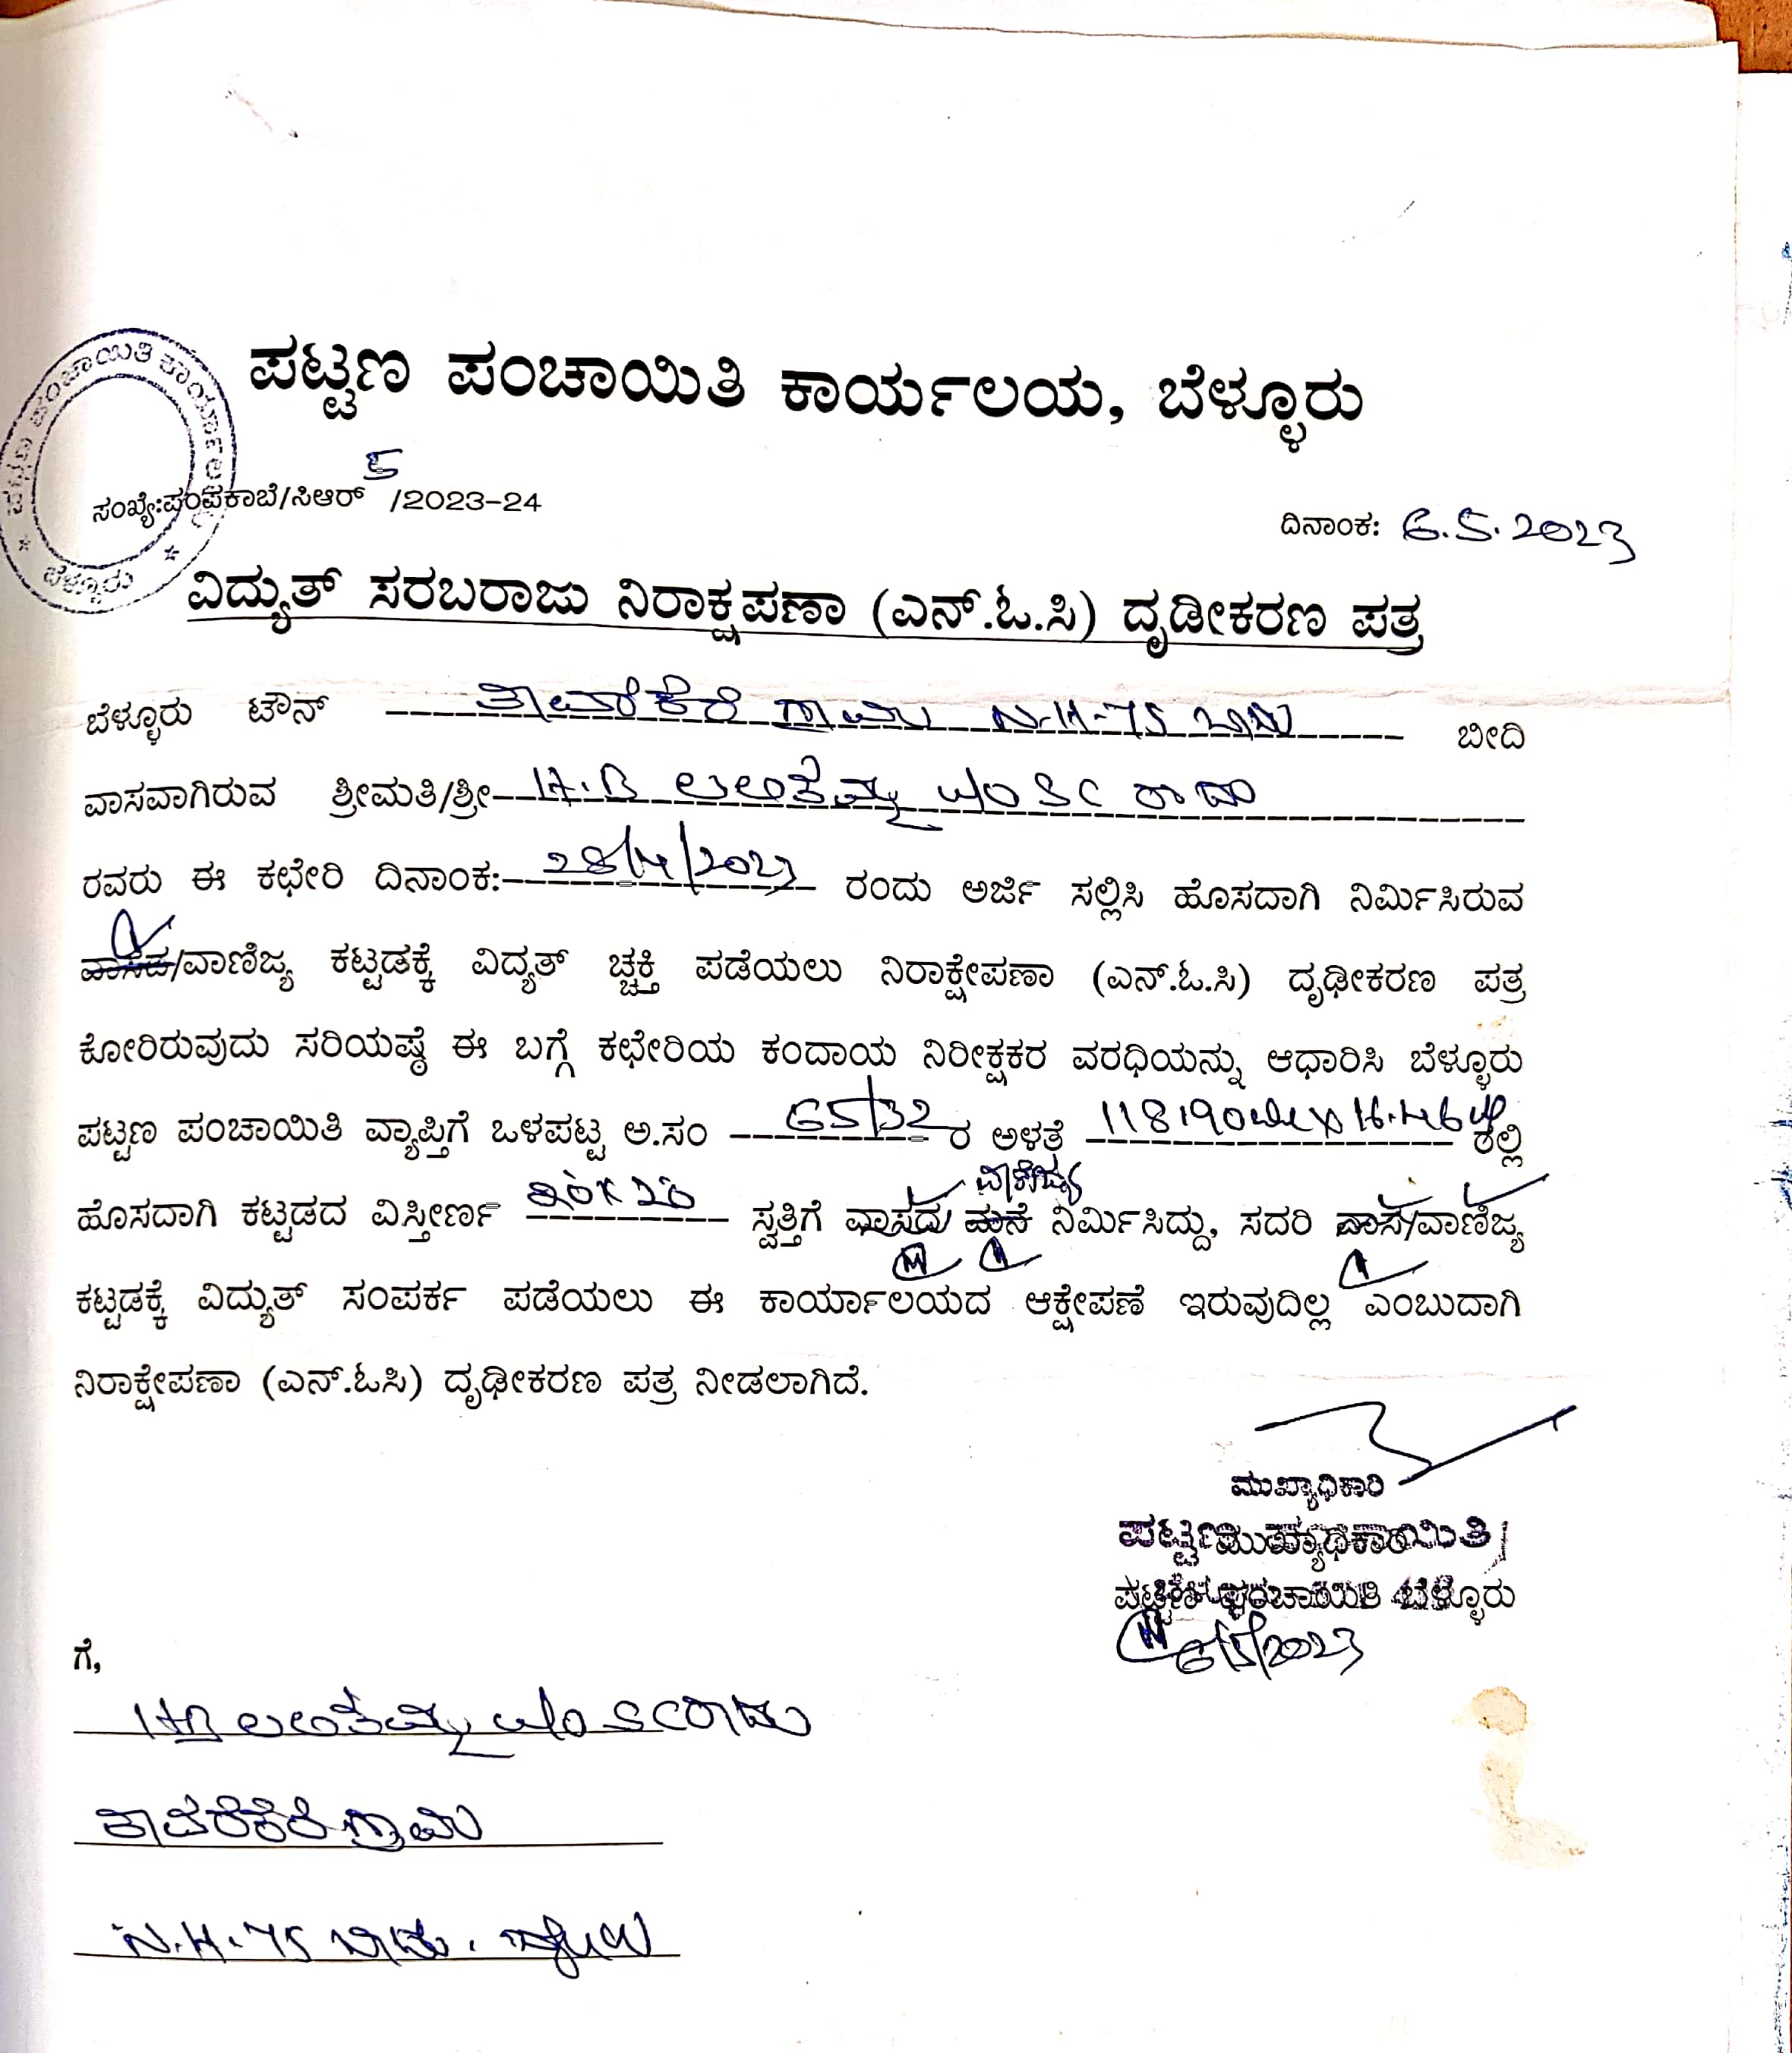 ಪಟ್ಟಣ ಪಂಚಾಯಿತಿ ಕಾರ್ಯಾಲಯ
ಬೆಳ್ಳೂರು
ಪಟ್ಟಣ ಪಂಚಾಯಿತಿ ಕಾರ್ಯಲಯ, ಬೆಳ್ಳೂರು
ಸಂಖ್ಯೆ:ಪಂಪಕಾಬೆ/ಸಿಆರ್ 5 /2023-24
ದಿನಾಂಕ: 6.5.2023
ವಿದ್ಯುತ್ ಸರಬರಾಜು ನಿರಾಕ್ಷಪಣಾ (ಎನ್.ಓ.ಸಿ) ದೃಡೀಕರಣ ಪತ್ರ
ಬೆಳ್ಳೂರು ಟೌನ್ ತಾವರೆಕೆರೆ ಗ್ರಾಮ N.H-75 ಬೀದಿ
ವಾಸವಾಗಿರುವ ಶ್ರೀಮತಿ/ಶ್ರೀ ಲಲಿತಮ್ಮ
ರವರು ಈ ಕಛೇರಿ ದಿನಾಂಕ: 28/4/2023 ರಂದು ಅರ್ಜಿ ಸಲ್ಲಿಸಿ ಹೊಸದಾಗಿ ನಿರ್ಮಿಸಿರುವ
ವಾಸದ/ವಾಣಿಜ್ಯ ಕಟ್ಟಡಕ್ಕೆ ವಿದ್ಯತ್ ಚ್ಚಕ್ತಿ ಪಡೆಯಲು ನಿರಾಕ್ಷೇಪಣಾ (ಎನ್.ಓ.ಸಿ) ದೃಢೀಕರಣ ಪತ್ರ
ಕೋರಿರುವುದು ಸರಿಯಷ್ಠೆ ಈ ಬಗ್ಗೆ ಕಛೇರಿಯ ಕಂದಾಯ ನಿರೀಕ್ಷಕರ ವರಧಿಯನ್ನು ಆಧಾರಿಸಿ ಬೆಳ್ಳೂರು
ಪಟ್ಟಣ ಪಂಚಾಯಿತಿ ವ್ಯಾಪ್ತಿಗೆ ಒಳಪಟ್ಟ ಅ.ಸಂ 65/32 ರ ಅಳತೆ ರಲ್ಲಿ
ವಾಣಿಜ್ಯ
ಹೊಸದಾಗಿ ಕಟ್ಟಡದ ವಿಸ್ತೀರ್ಣ ಸ್ವತ್ತಿಗೆ ವಾಸದ ಮನೆ ನಿರ್ಮಿಸಿದ್ದು, ಸದರಿ ವಾಸ/ವಾಣಿಜ್ಯ
ಕಟ್ಟಡಕ್ಕೆ ವಿದ್ಯುತ್ ಸಂಪರ್ಕ ಪಡೆಯಲು ಈ ಕಾರ್ಯಾಲಯದ ಆಕ್ಷೇಪಣೆ ಇರುವುದಿಲ್ಲ ಎಂಬುದಾಗಿ
ನಿರಾಕ್ಷೇಪಣಾ (ಎನ್.ಓಸಿ) ದೃಢೀಕರಣ ಪತ್ರ ನೀಡಲಾಗಿದೆ.
ಮುಖ್ಯಾಧಿಕಾರಿ
ಮುಖ್ಯಾಧಿಕಾರಿ
ಪಟ್ಟಣ ಪಂಚಾಯಿತಿ ಬೆಳ್ಳೂರು
6/5/2023
ಗೆ,
ಲಲಿತಮ್ಮ
ತಾವರೆಕೆರೆ ಗ್ರಾಮ
N.H.75